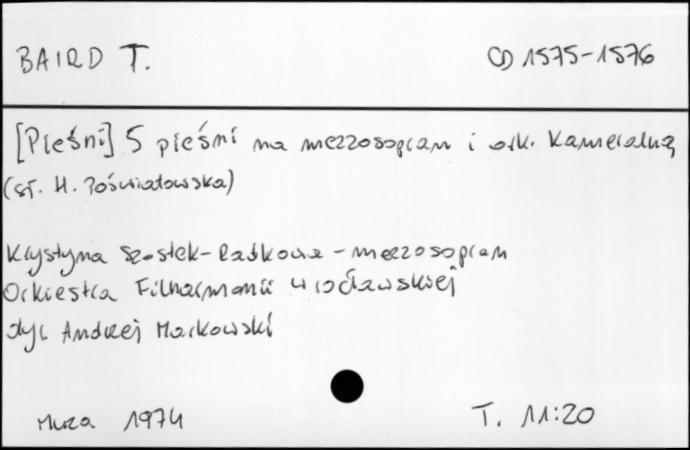 BAIRD T. CD 1575-1576
[Pieśni] 5 pieśni na mezzosopran i ork. kameralną
(sł. H. Poświatowska)
Krystyna Szostek-Radkowa - mezzosopran
Orkiestra Filharmonii Wrocławskiej
dyr Andrzej Markowski
Muza 1974 T. 11:20